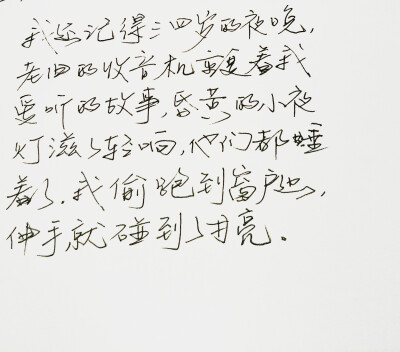 我还记得三四岁的夜晚,
老旧的收音机重复着我
爱听的故事,昏黄的小夜
灯滋滋轻响,他们都睡
着了.我偷跑到窗户边,
伸手,就碰到月亮.